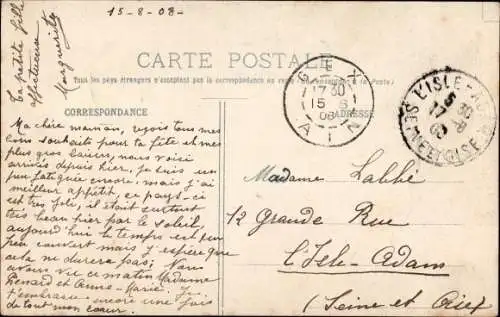 15-8-08-
Ta petite fille
affectueuse
Marguerite
CARTE POSTALE
Tous les pays étrangers n'acceptent pas la correspondance au recto (Se renseigner à la Poste)
CORRESPONDANCE
ADRESSE
GEX
17 30
15 8
08
AIN
L'ISLE-ADAM
SEINE ET OISE
Ma chère maman, reçois tous mes
bons souhaits pour ta fête et mes
plus gros baisers, nous voici
arrivés depuis hier, je suis un
peu fatiguée encore, mais j'ai
meilleur appétit, ce pays-ci
est très joli, il était surtout
très beau hier par le soleil,
aujourd'hui le temps est un
peu couvert mais j'espère que
cela ne durera pas; Nous
avons vu ce matin Madame
Renard et Anne-Marie. Je
t'embrasse encore une fois
de tout mon coeur.
Madame Labbé
12 Grande Rue
l'Isle-Adam
(Seine et Oise)